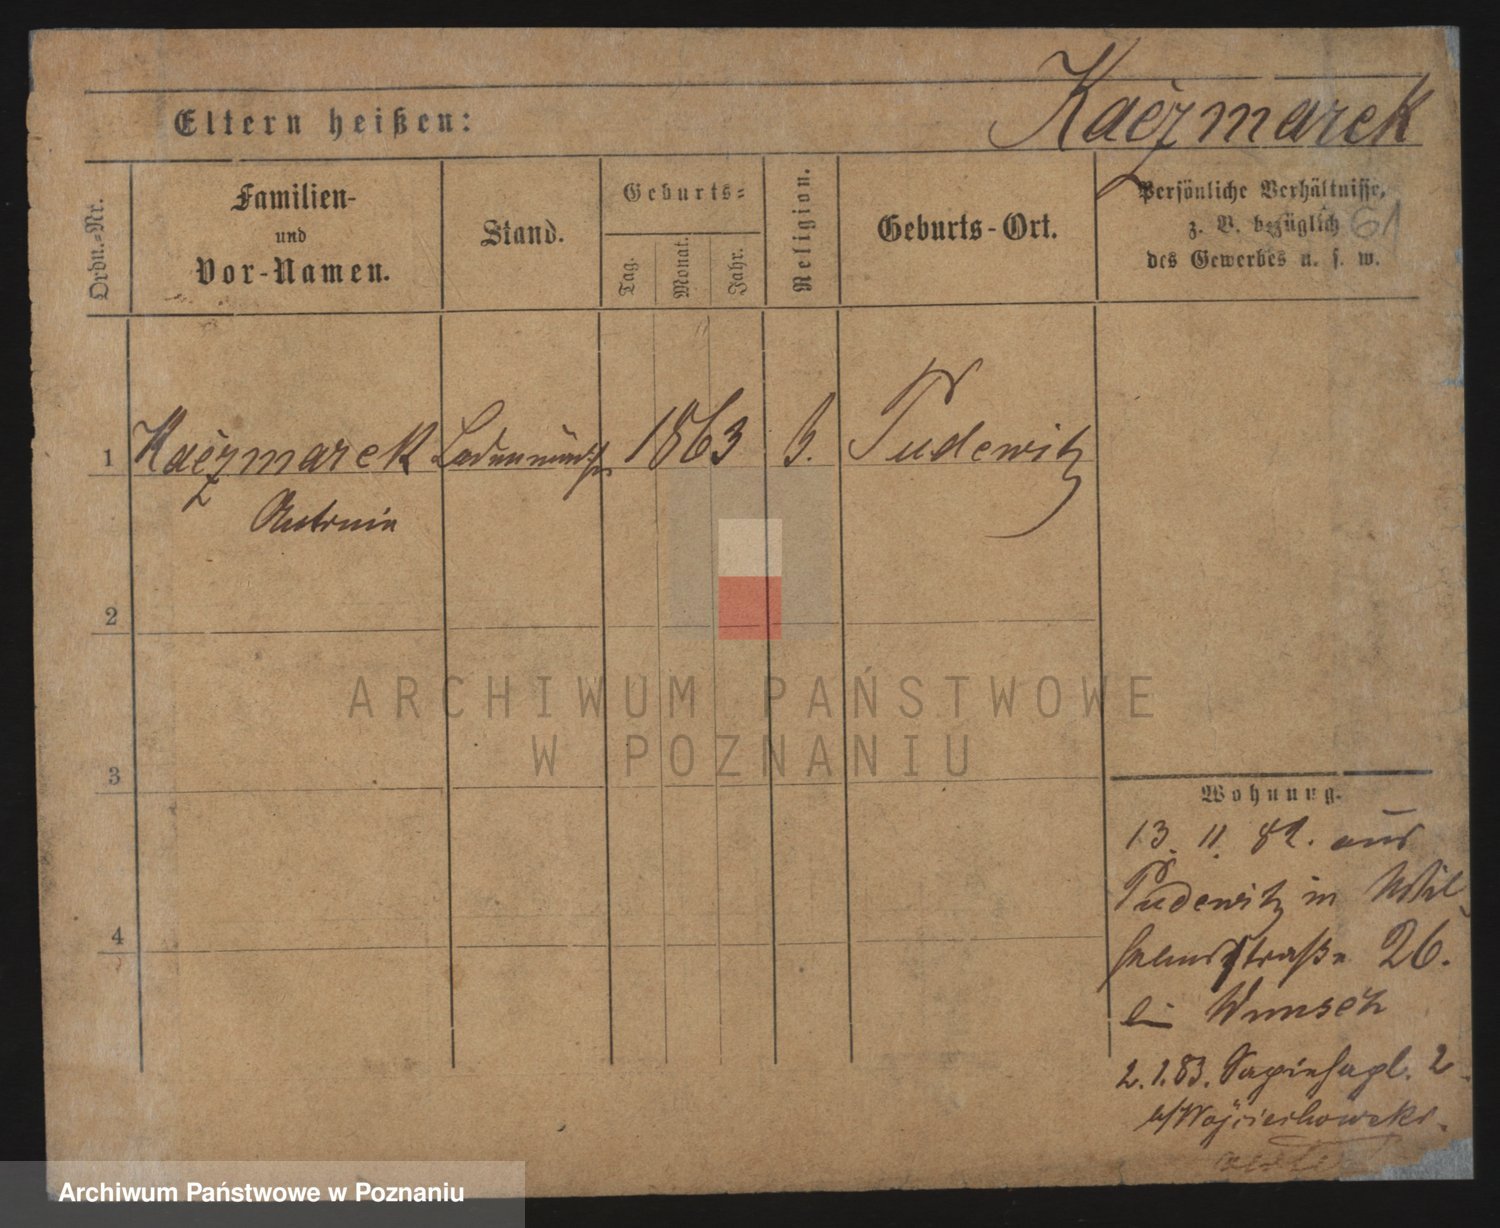 Kaczmarek
Eltern heißen:
Ordn.-Nr.
Familien-
und
Vor-Namen.
Stand.
Geburts-
Tag.
Monat.
Jahr.
Religion.
Geburts-Ort.
Persönliche Verhältnisse,
z. B. bezüglich
des Gewerbes u. s. w.
61
1 Kaczmarek 1863 Pudewitz
Antonin
2
3
4
Wohnung.
13. 11. 82. aus
Pudewitz in Wil-
helmstraße 26.
bei Wunsch
2. 1. 83. Sapiehapl. 2
b/Wojciechowski.
ARCHIWUM PAŃSTWOWE
W POZNANIU
Archiwum Państwowe w Poznaniu